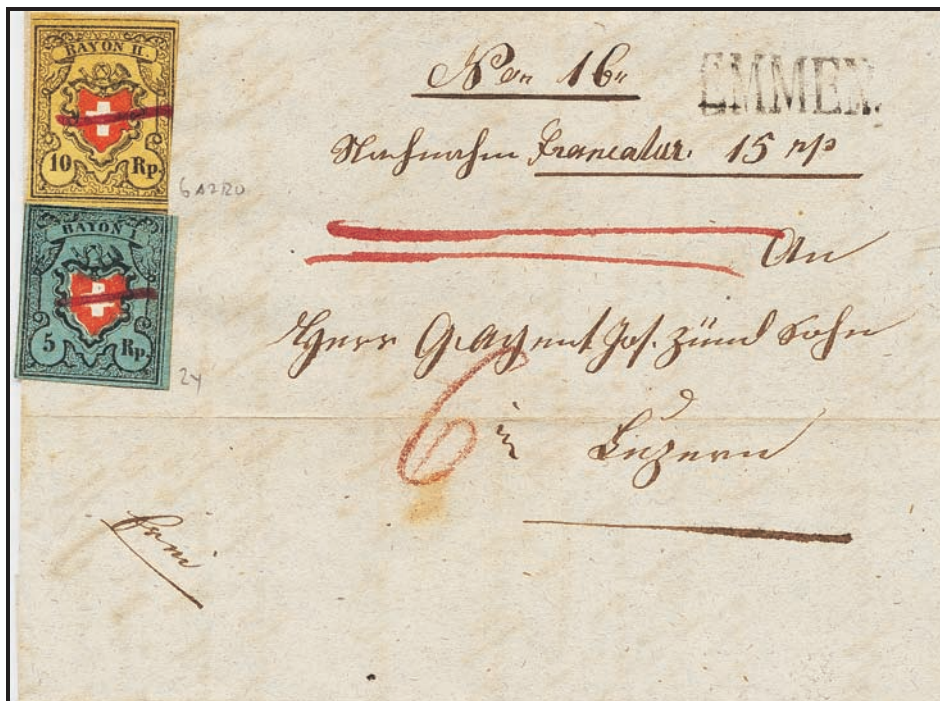 RAYON II
10 Rp.
6 A2 RO
RAYON I
5 Rp.
24
No 16
EMMEN.
Nachnahm Francatur. 15 rp
An
Herr Agent Jos. Zünd Sohn
6
in Luzern